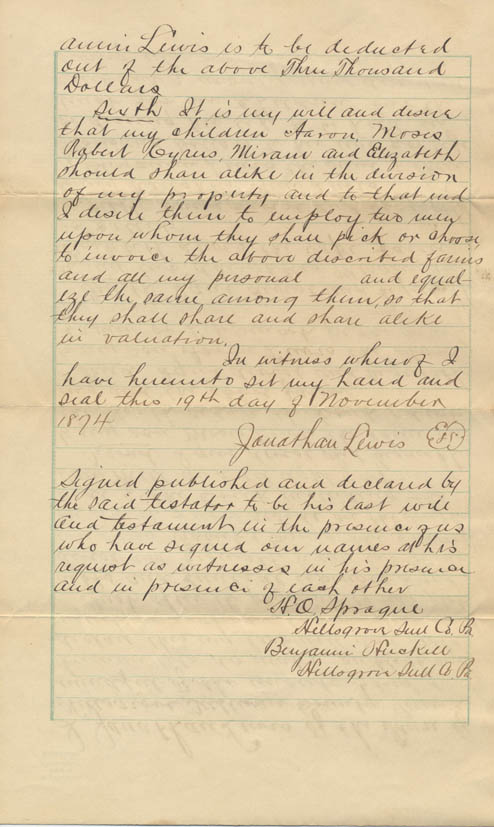 amin Lewis is to be deducted
out of the above Three Thousand
Dollars
Sixth It is my will and desire
that my children Aaron, Moses
Robert Cyrus, Miram and Elizabeth
should share alike in the division
of my property and to that end
I desire them to employ two men
upon whom they shall pick or choose
to invoice the above described farms
and all my personal and equal-
ize the same among them, so that
they shall share and share alike
in valuation.
In witness whereof I
have hereunto set my hand and
seal this 19th day of November
1874
Jonathan Lewis
Signed published and declared by
the said testator to be his last will
and testament in the presence of us
who have signed our names at his
request as witnesses in his presence
and in presence of each other
Sprague
Hillsgrove Sull Co. Pa
Benjamin Huckell
Hillsgrove Sull Co. Pa